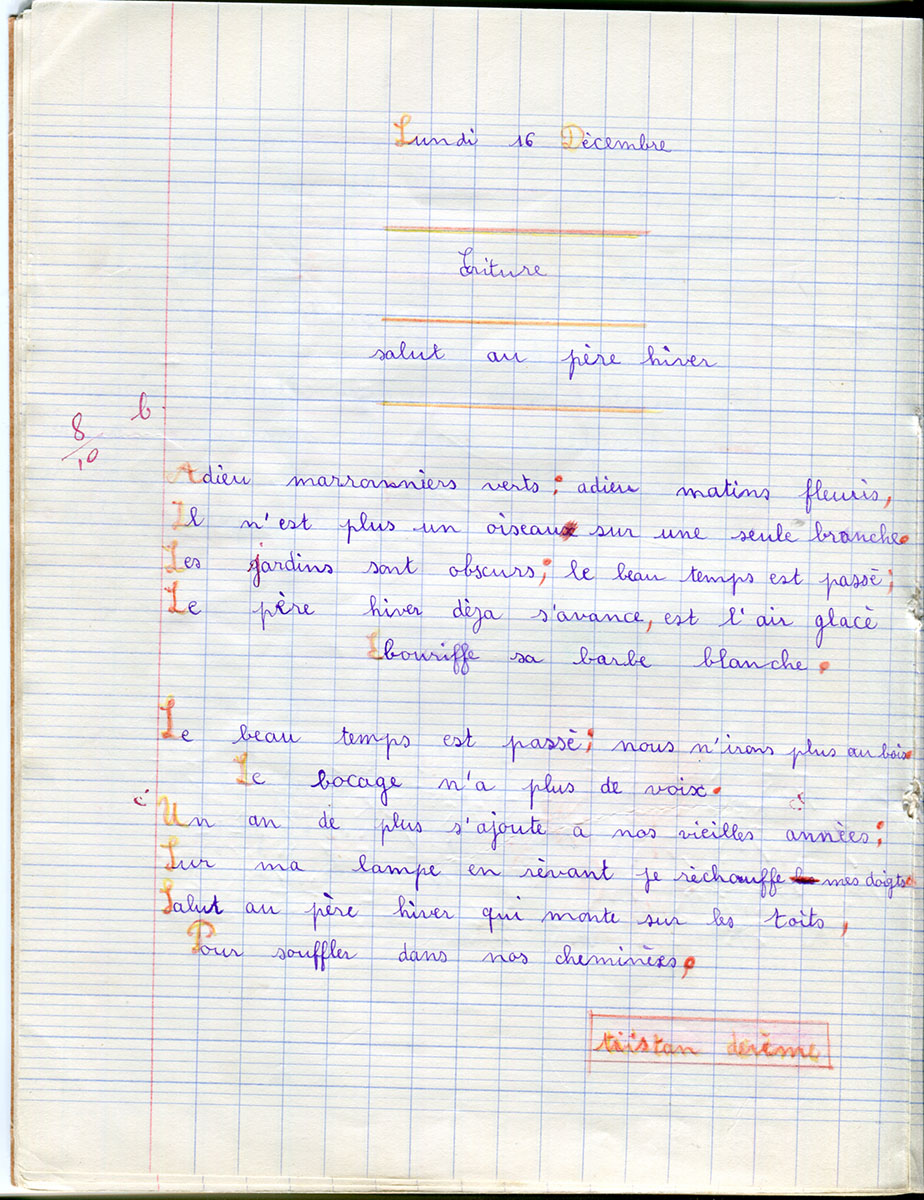 Lundi 16 Dècembre
Ecriture
salut au père hiver
b
8/10
Adieu marronniers verts; adieu matins fleuris,
Il n'est plus un oiseau sur une seule branche.
Les jardins sont obscurs; le beau temps est passè;
Le père hiver dèja s'avance, est l'air glacè
Ebouriffe sa barbe blanche.
Le beau temps est passè; nous n'irons plus au bois.
Le bocage n'a plus de voix.
Un an de plus s'ajoute a nos vieilles annèes;
Sur ma lampe en rèvant je rèchauffe mes doigts.
Salut au père hiver qui monte sur les toits,
Pour souffler dans nos cheminèes.
tristan derème